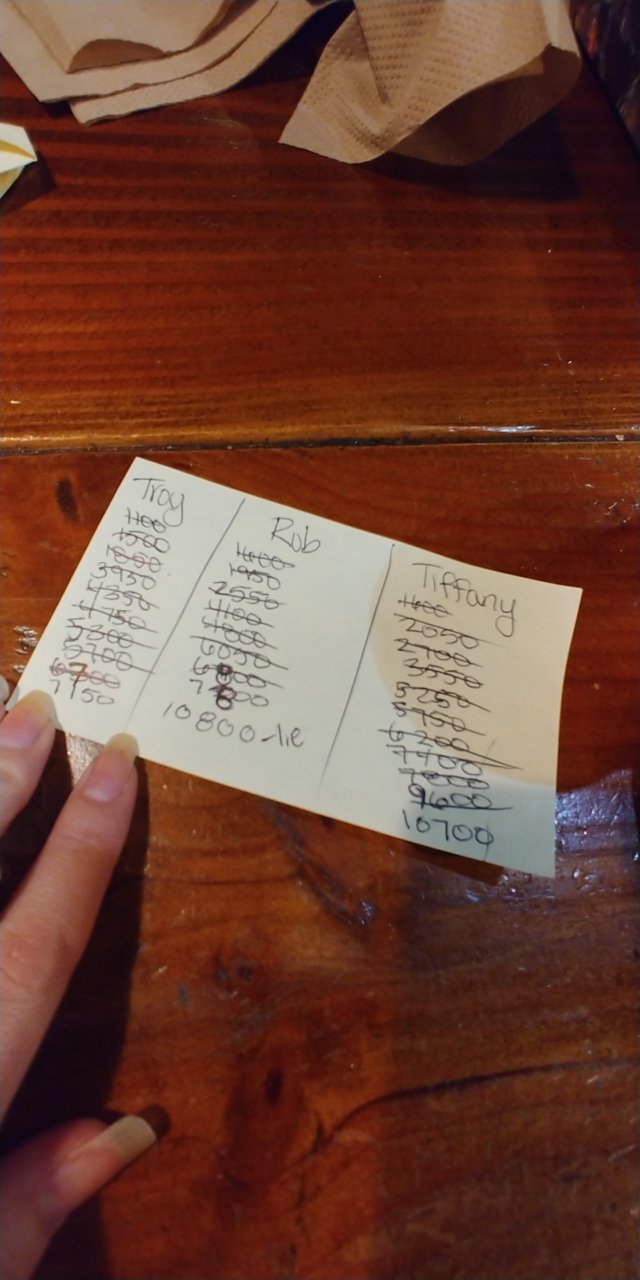 Troy
1100
1500
3950
4350
4750
5300
5700
6700
7150
Rob
1950
2550
4100
6050
10800 -lie
Tiffany
1100
2050
2700
3550
5250
5750
6200
7400
9600
10700